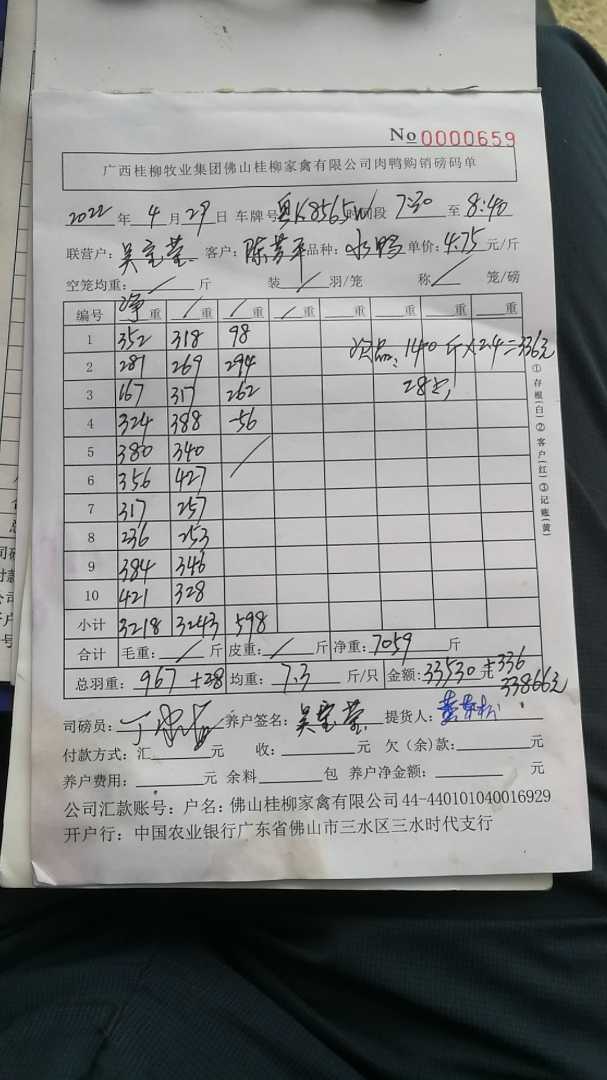 No 0000659
广西桂柳牧业集团佛山桂柳家禽有限公司肉鸭购销磅码单
2022 年 4 月 29 日 车牌号 粤K8565W 时间段 7:30 至 8:40
联营户: 吴宝莹 客户: 陈芳平 品种: 水鸭 单价: 4.75 元/斤
空笼均重: / 斤 装 / 羽/笼 称 / 笼/磅
编号 净重 / 重 / 重 / 重 重 重 重 重
1 352 318 98
次品: 140斤×2.4=336元
2 281 269 294
28只
3 167 317 262
4 324 388 -56
5 380 340 /
6 356 427
7 317 257
8 236 253
9 384 346
10 421 328
小计 3218 3243 598
合计 毛重: / 斤 皮重: / 斤 净重: 7059 斤
总羽重: 967 +28 均重: 7.3 斤/只 金额: 33530 元+336
33866元
司磅员: 养户签名: 吴宝莹 提货人:
付款方式: 汇 元 收: 元 欠(余)款: 元
养户费用: 元 余料 包 养户净金额: 元
公司汇款账号: 户名: 佛山桂柳家禽有限公司 44-440101040016929
开户行: 中国农业银行广东省佛山市三水区三水时代支行
①存根(白)②客户(红)③记账(黄)